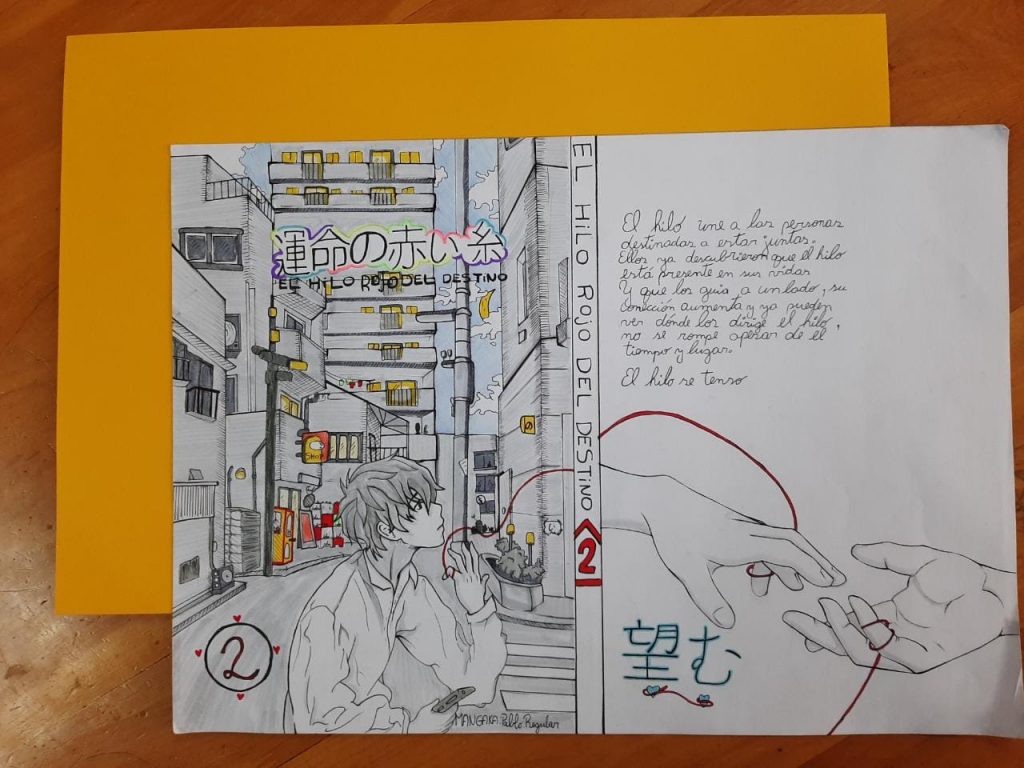 運命の赤い糸
EL HiLO ROJO DEL DESTiNO
SHOP
2
MANGAKA: Pablo Regular
EL HiLO ROJO DEL DESTiNO
2
El hilo une a las personas
destinadas a estar juntas.
Ellos ya descubrieron que el hilo
está presente en sus vidas
Y que los guia a un lado, su
conección aumenta y ya pueden
ver dónde los dirige el hilo,
no se rompe apesar de el
tiempo y lugar.
El hilo se tenso
望む